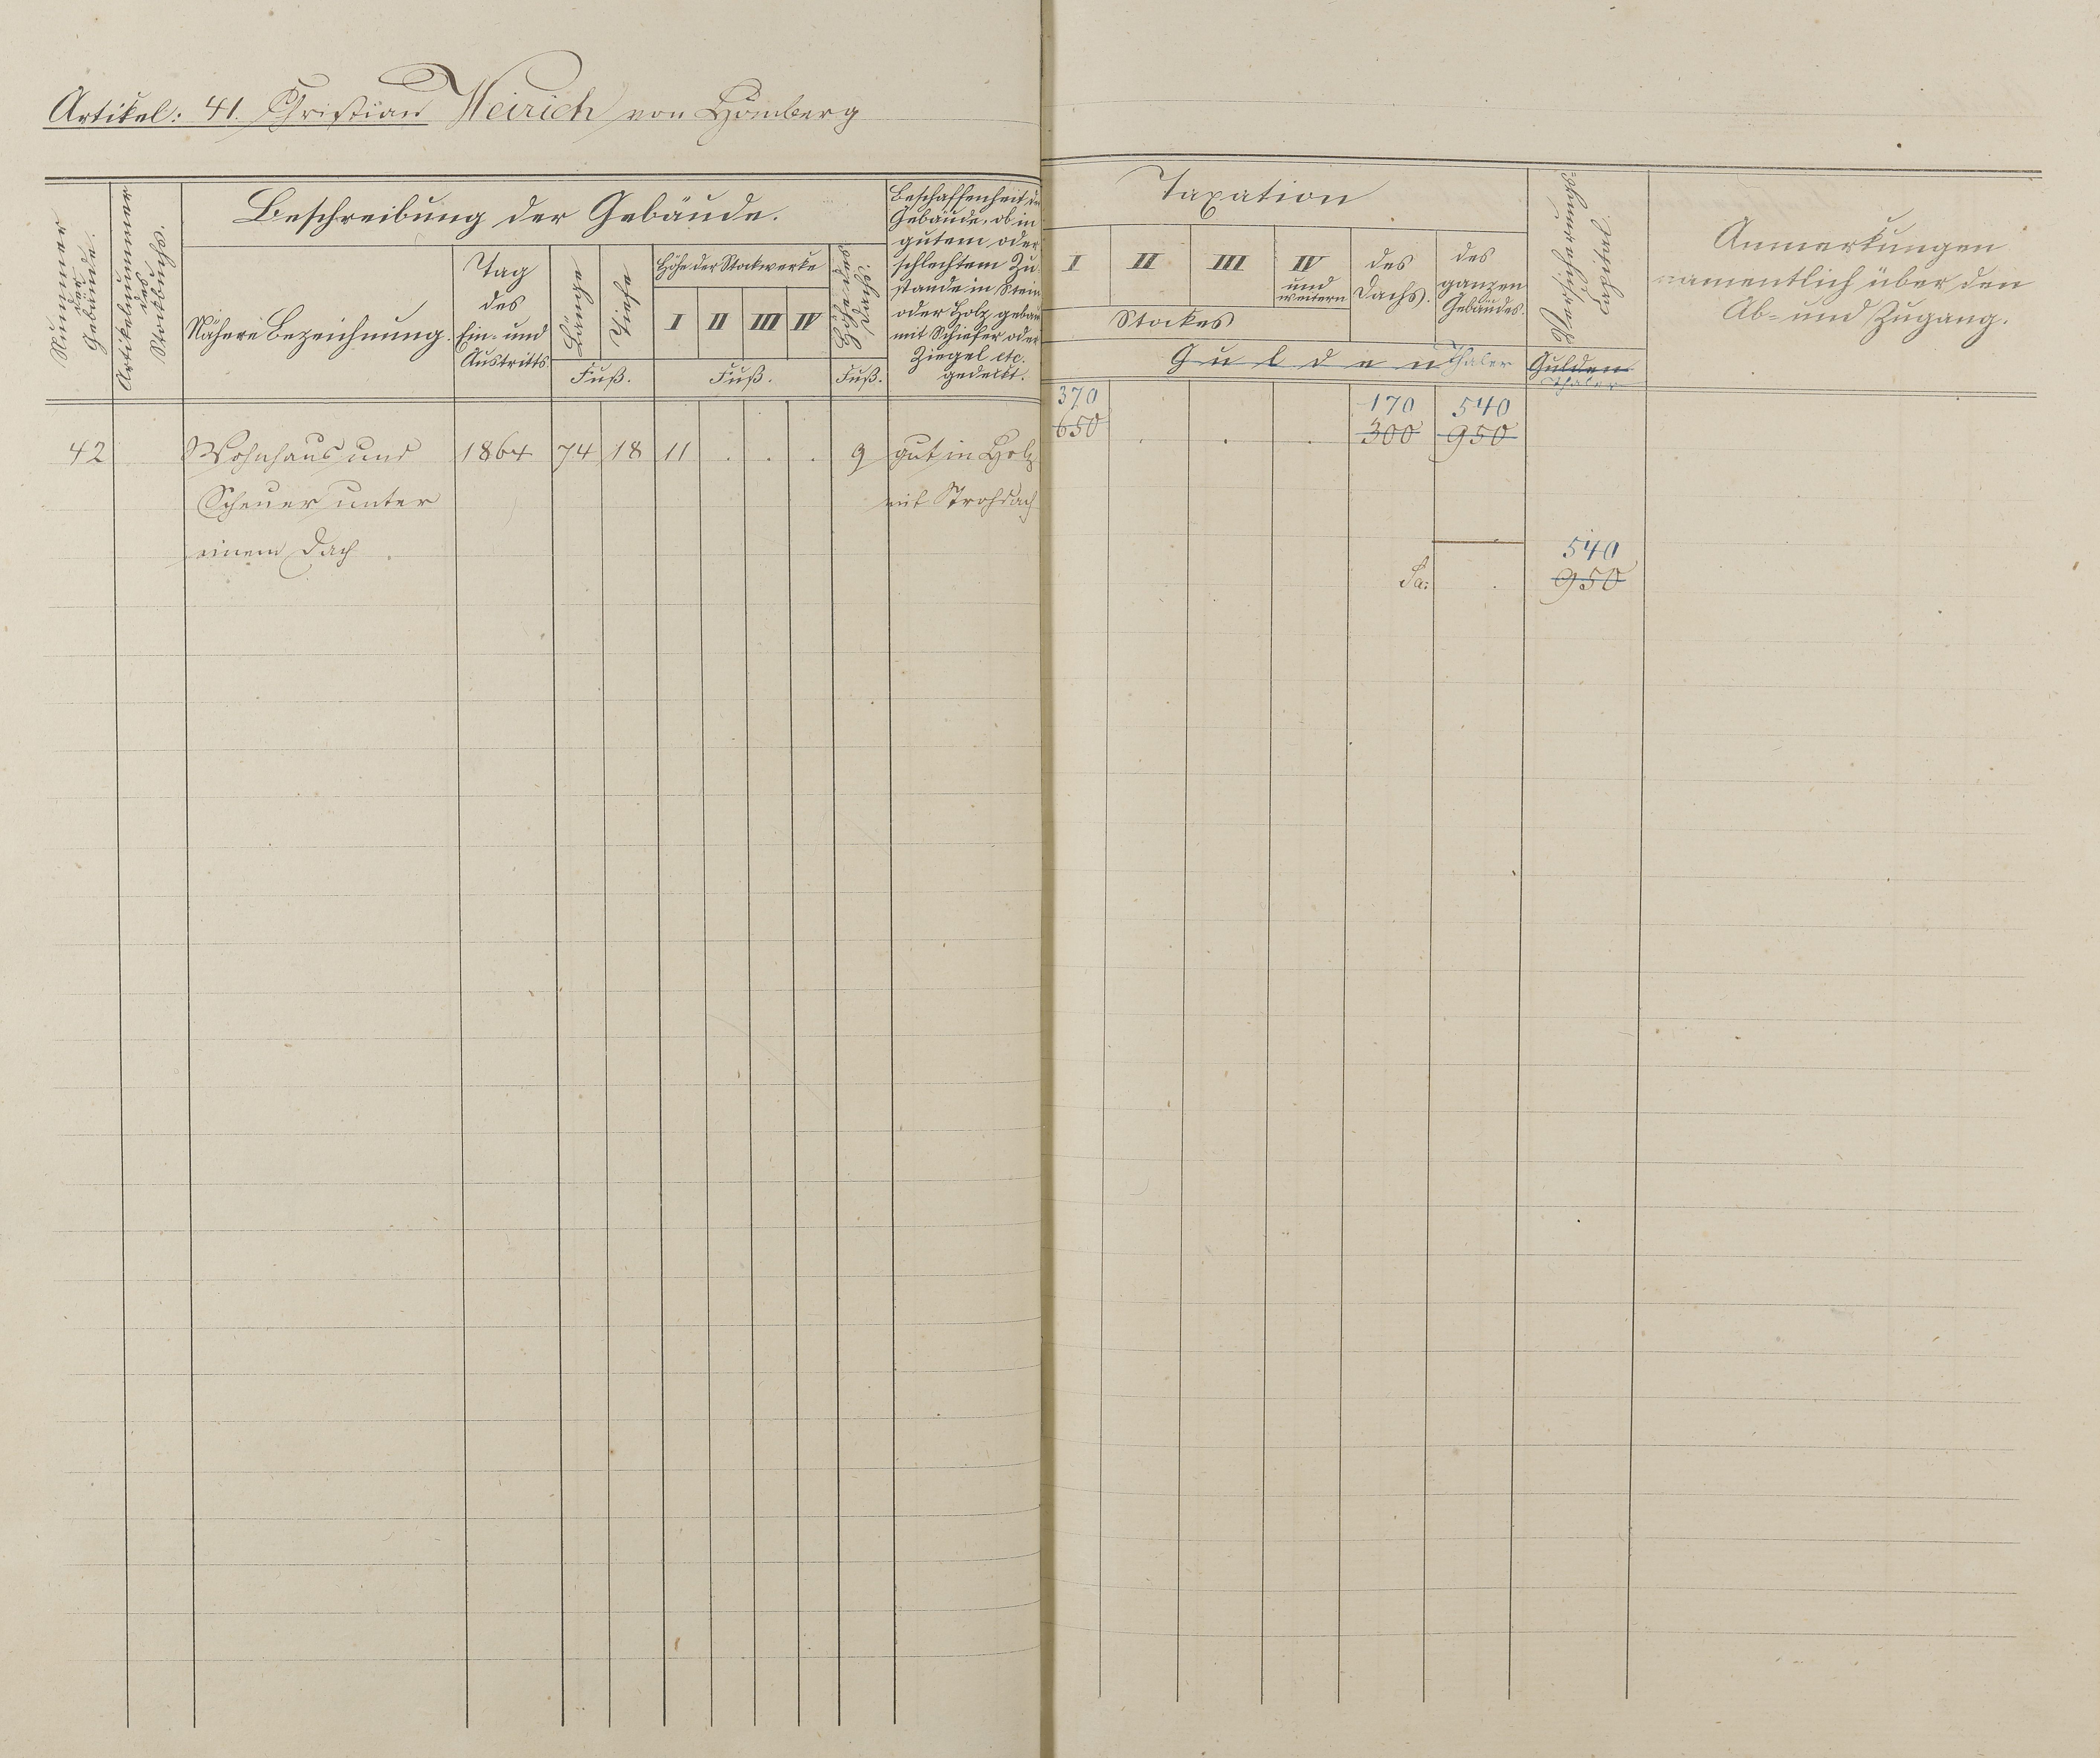 Artikel: 41. Christian Weirich von Homberg
Nummer der Gebäude.
Artikelnummer des Stockbuchs.
Beschreibung der Gebäude.
Nähere Bezeichnung.
Tag
des
Ein- und
Austritts.
Länge
Tiefe
Fuß.
Höhe der Stockwerke
I II III IV
Fuß.
Höhe des Dachs.
Fuß.
Beschaffenheit der
Gebäude, ob in
gutem oder
schlechtem Zu-
stande in Stein
oder Holz gebaut
mit Schiefer oder
Ziegel etc.
gedeckt.
Taxation
I II III IV
und
weitern
Stockes
des
Dachs.
des
ganzen
Gebäudes.
Gulden Thaler
Versicherungs-
Capital.
Gulden
Thaler
Anmerkungen
namentlich über den
Ab- und Zugang.
370 170 540
42 Wohnhaus und 1864 74 18 11 . . . 9 gut in Holz 650 . . . 300 950
Scheuer unter mit Strohdach
einem Dach 540
Sa. . 950